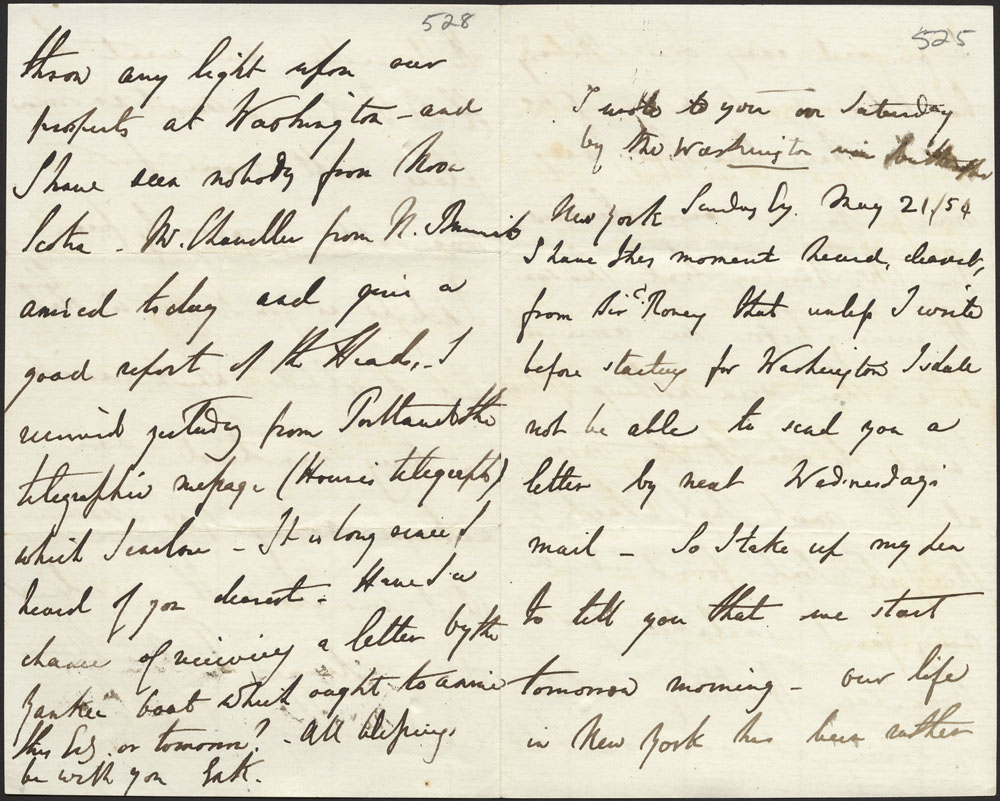 525
I wrote to you on Saturday
by the Washington via
New York Sunday Ev. May 21/54
I have this moment heard, dearest,
from Sir C. Roney that unless I write
before starting for Washington I shall
not be able to send you a
letter by next Wednesday's
mail - So I take up my pen
to tell you that we start
tomorrow morning - our life
in New York has been rather
528
throw any light upon our
prospects at Washington - and
I have seen nobody from Nova
Scotia - Mr. Chandler from N. Brunswick
arrived today and gives a
good report of the Heads,- I
received yesterday from Portland the
telegraphic message (House's telegraph)
which I enclose - It is long since I
heard of you dearest - Have I a
chance of receiving a letter by the
Yankee boat which ought to arrive
this Evg. or tomorrow? - All blessings
be with you